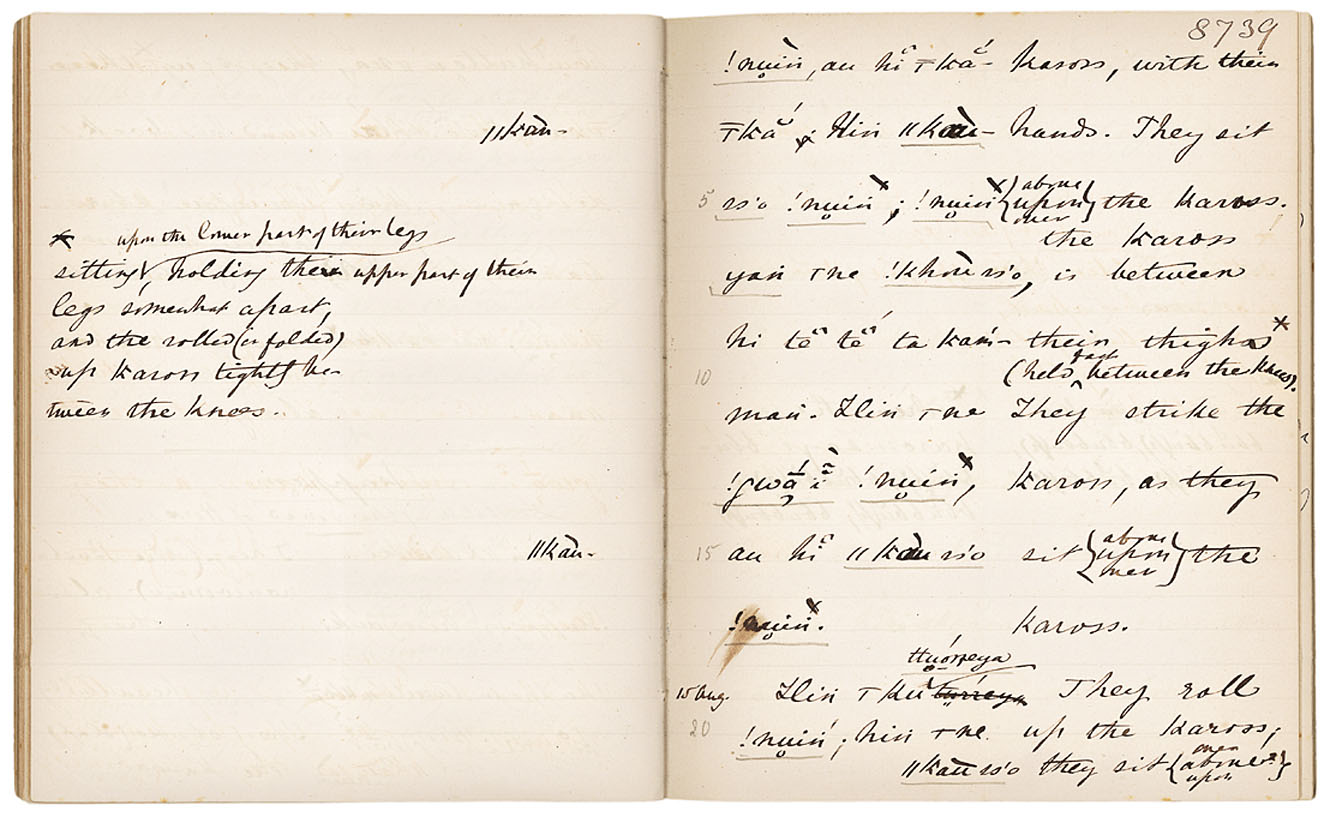 ǁkàu-
× upon the lower part of their legs
sitting, holding their upper part of their
legs somewhat apart,
and the rolled (or folded)
up kaross tightly be-
tween the knees.
ǁkàu-
8739
!nuïŋ, au hĭ ꞇkă- kaross, with their
ꞇkă; Hiŋ ǁkàu- hands. They sit
5 ss'o !nuïŋ; !nuïŋ {above upon over} the kaross.
the kaross
yaŋ ꞇne !khoù ss'o, is between
hi tĕ tĕ ta kam- their thighs×
10 (held fast between the knees).
maŋ. Hiŋ ꞇne They strike the
!gwā́ ĭ !nuïŋ, kaross, as they
15 au hĭ ǁkàu ss'o sit {above upon over} the
!nuïŋ. kaross.
ttuórreya
15 Aug. Hiŋ ꞇku They roll
20 !nuïŋ; hiŋ ꞇne up the kaross;
ǁkàu ss'o they sit {over above? upon}